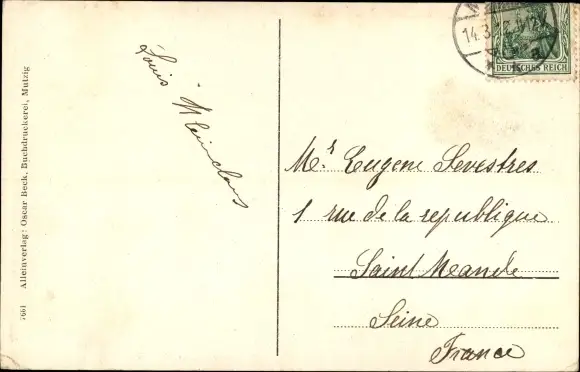 Louis
Mr. Eugene Sevestres
1 rue de la republique
Saint Mande
Seine
France
DEUTSCHES REICH
14.3.
7661 Alleinverlag: Oscar Beck, Buchdruckerei, Mutzig